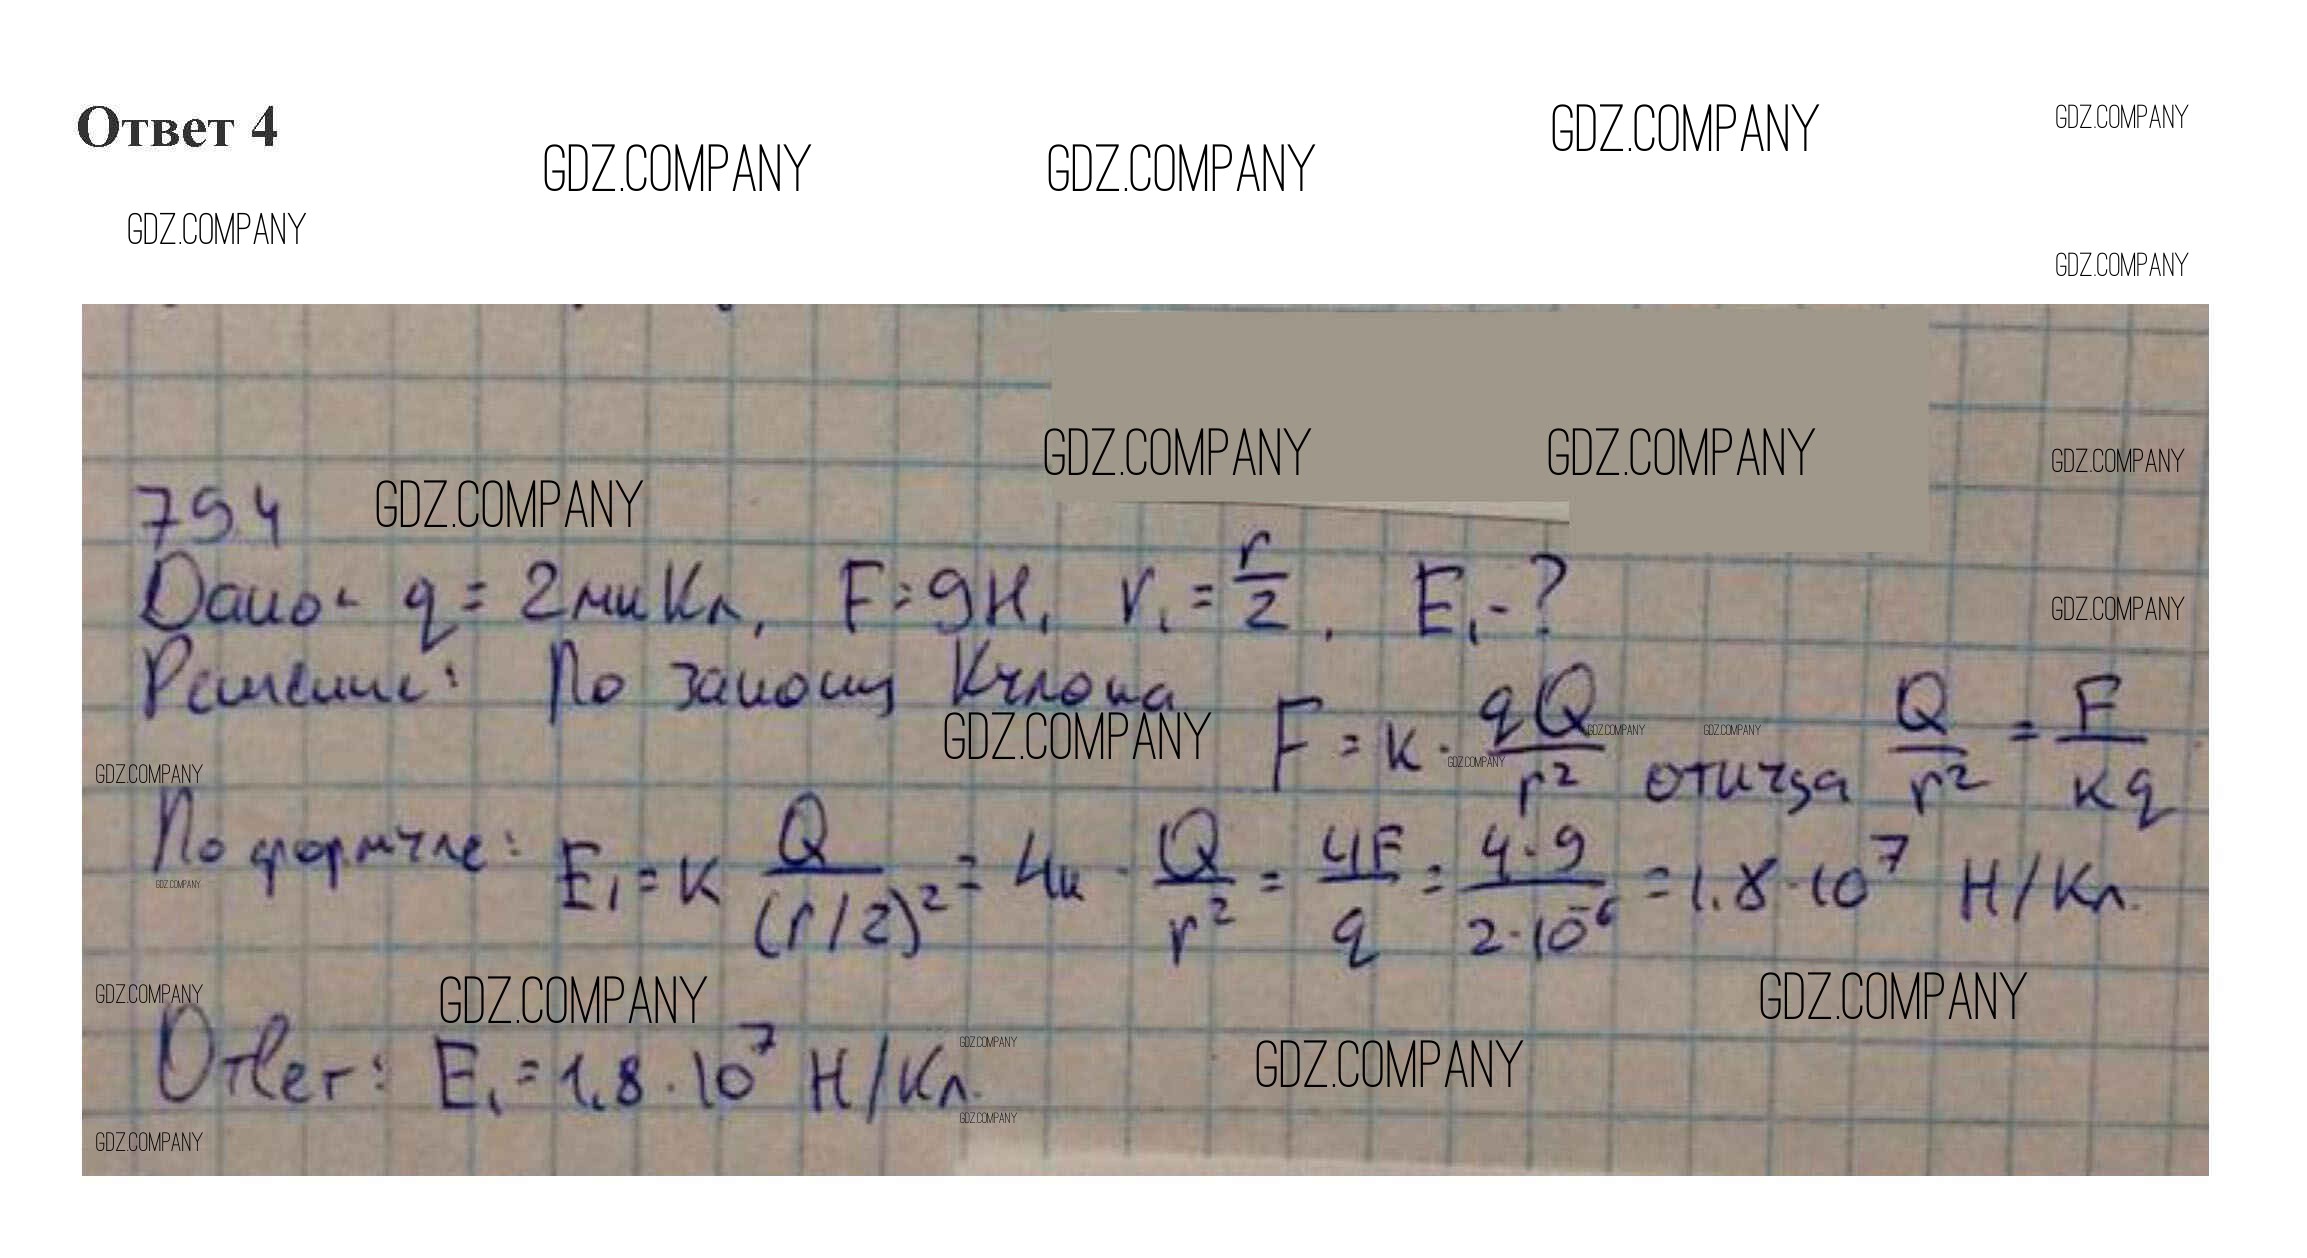 Ответ 4
GDZ.COMPANY
GDZ.COMPANY GDZ.COMPANY GDZ.COMPANY
GDZ.COMPANY
GDZ.COMPANY
GDZ.COMPANY GDZ.COMPANY GDZ.COMPANY
79.4 GDZ.COMPANY
Дано: q = 2 мкКл, F = 9 Н, r₁ = r/2, E₁ - ?
GDZ.COMPANY
Решение: По закону Кулона F = к · qQ/r² откуда Q/r² = F/кq
GDZ.COMPANY GDZ.COMPANY GDZ.COMPANY GDZ.COMPANY
GDZ.COMPANY
По формуле: E₁ = к Q/(r/2)² = 4к · Q/r² = 4F/q = 4·9/2·10⁻⁶ = 1.8·10⁷ Н/Кл.
GDZ.COMPANY
GDZ.COMPANY GDZ.COMPANY GDZ.COMPANY
Ответ: E₁ = 1.8·10⁷ Н/Кл.
GDZ.COMPANY GDZ.COMPANY
GDZ.COMPANY
GDZ.COMPANY